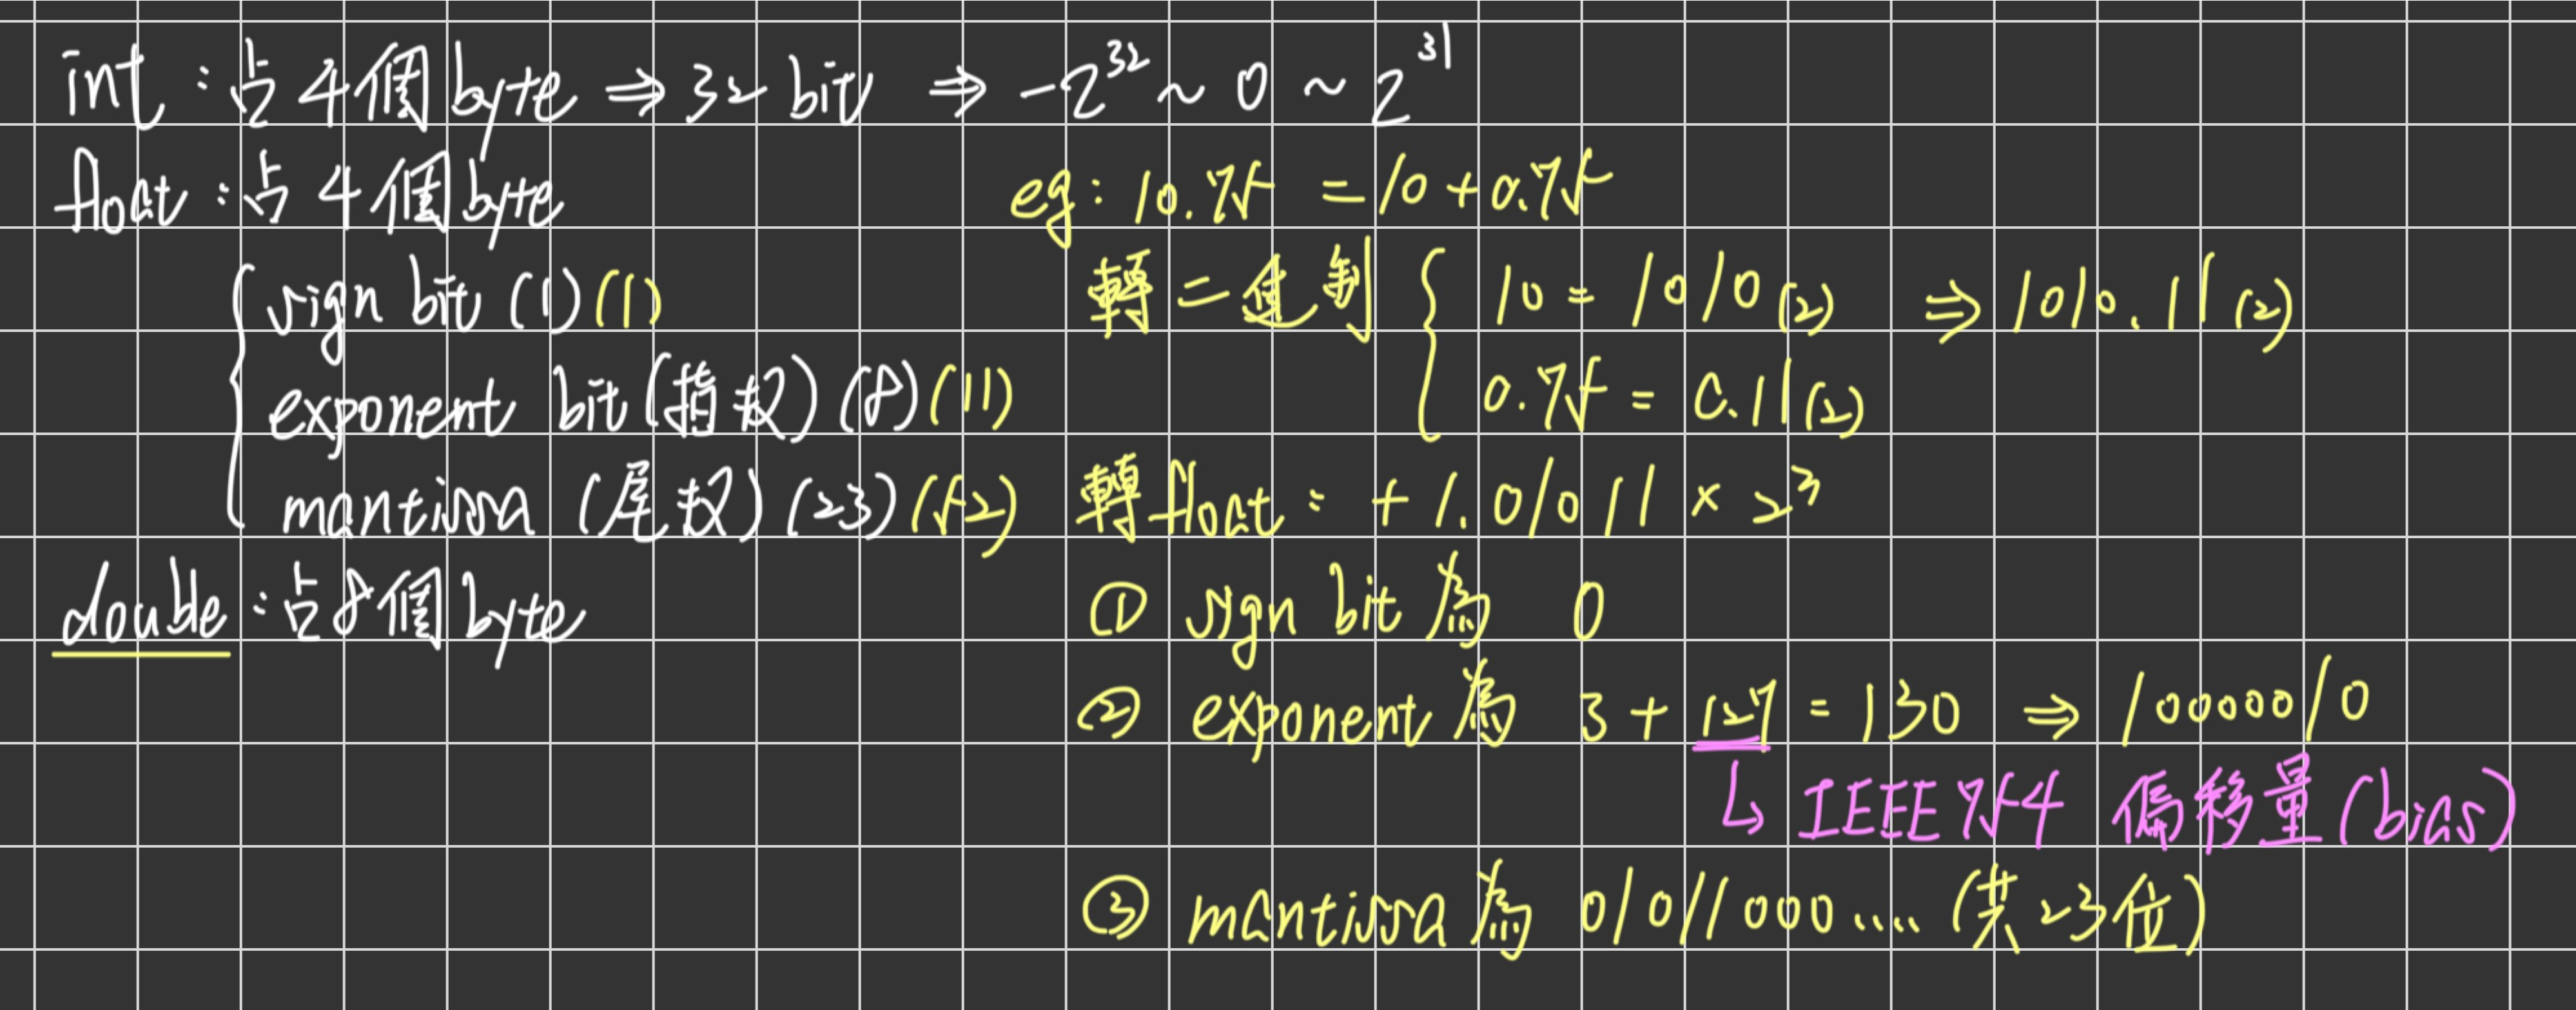 int : 占4個byte ⇒ 32 bit ⇒ -2^32 ~ 0 ~ 2^31
float : 占4個byte
sign bit (1) (1)
exponent bit (指数) (8) (11)
mantissa (尾数) (23) (52)
double : 占8個byte
eg: 10.75 = 10 + 0.75
轉二進制 { 10 = 1010(2) ⇒ 1010.11(2)
0.75 = 0.11(2)
轉float : + 1.01011 × 2^3
① sign bit 為 0
② exponent 為 3 + 127 = 130 ⇒ 10000010
↳ IEEE754 偏移量(bias)
③ mantissa 為 01011000.... (共23位)